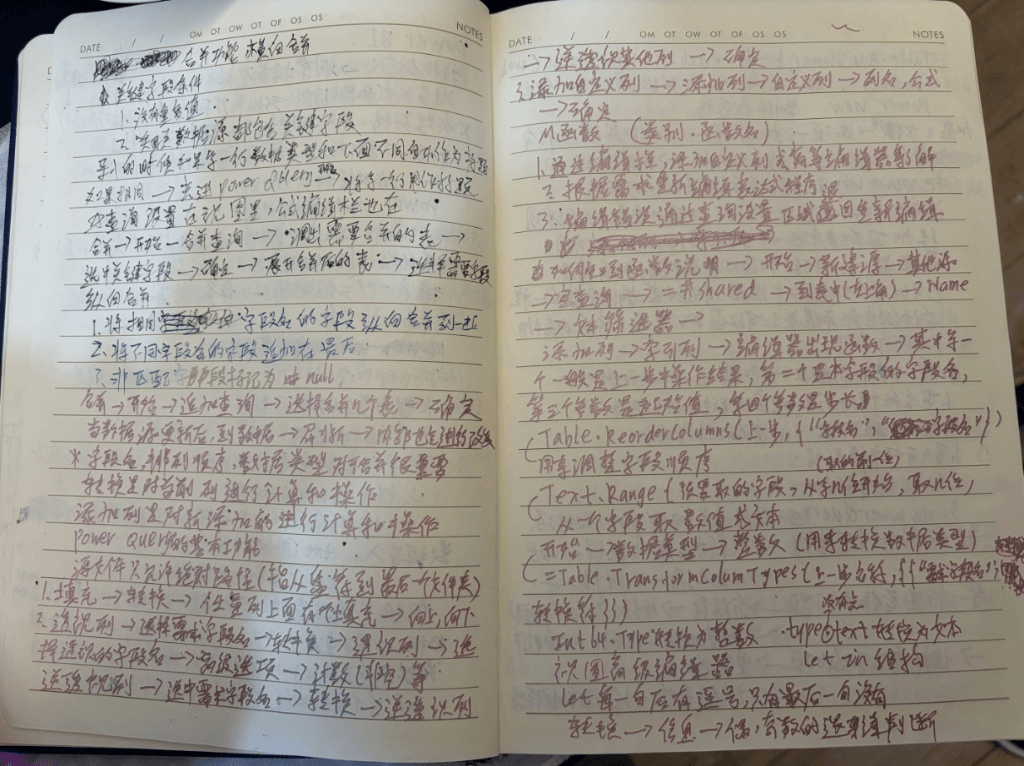 DATE / / OM OT OW OT OF OS OS NOTES
合并功能 横向合并
关键字段条件
1. 没有重复值
2. 数据源都包含关键字段
导入的时候如果第一行数据类型和下面不同自动作为标题
如果相同 → 先进 Power Query → 将第一行用作标题
查询设置在视图里，公式编辑栏也在
合并→开始→合并查询 → 调出需要合并的表 →
选中关键字段 → 确定 → 展开合并后的表 → 选中需要字段
纵向合并
1. 将相同字段名的字段纵向合并到一起
2. 将不同字段名的字段追加在最后
3. 非匹配字段标记为 null
合并→开始→追加查询→选择合并几个表→确定
当数据源更新后，到数据→刷新→内部也会进行改变
* 字段名，排列顺序，数据类型，对于合并很重要
转换是对当前列进行计算和操作
添加列是对新添加的进行计算和操作
Power Query的基本功能
源文件只允许绝对路径(指从盘符到最后一个文件夹)
1. 填充→转换→任意列上面有个填充→向上，向下
2. 透视列→选择需求字段名→转换→透视列→选
择透视的字段名→高级选项→计数(非空)等
逆透视列→选中需求字段名→转换→逆透视列
DATE / / OM OT OW OT OF OS OS NOTES
→逆透视其他列 →确定
3. 添加自定义列→添加列→自定义列→列名，公式
→确定
M函数 (类别.函数名)
1. 通过编辑栏，添加自定义列或高等编辑器了解
2. 根据需求重新编辑表达式程序
3. 编辑错误通过查询设置区域返回重新编辑
如何到函数说明→开始→新建源→其他源
→空查询 → =#shared →到表中(左上角)→Name
→文本筛选器→
添加列→索引列→编辑器出现函数→其中第一
个一般是上一步中操作结果，第二个显示字段的字段名，
第三个参数是起始值，第四个参数是步长
(Table.ReorderColumns(上一步, {"字段名", "字段名"})
用来调整字段顺序 (取的前一位)
(Text.Range(须要取的字段，从第n位开始，取n位，
从一个字段取数值或文本
开始→数据类型→整数(用来转换数据类型)
(=Table.TransformColumTypes(上一步名称, {{"字段名",
转换符}})
Int64.Type转换为整数 type text 转换为文本
视图高级编辑器 let in 结构
let每一句后有逗号，只有最后一句没有
转换→信息→偶，奇数的逻辑值判断